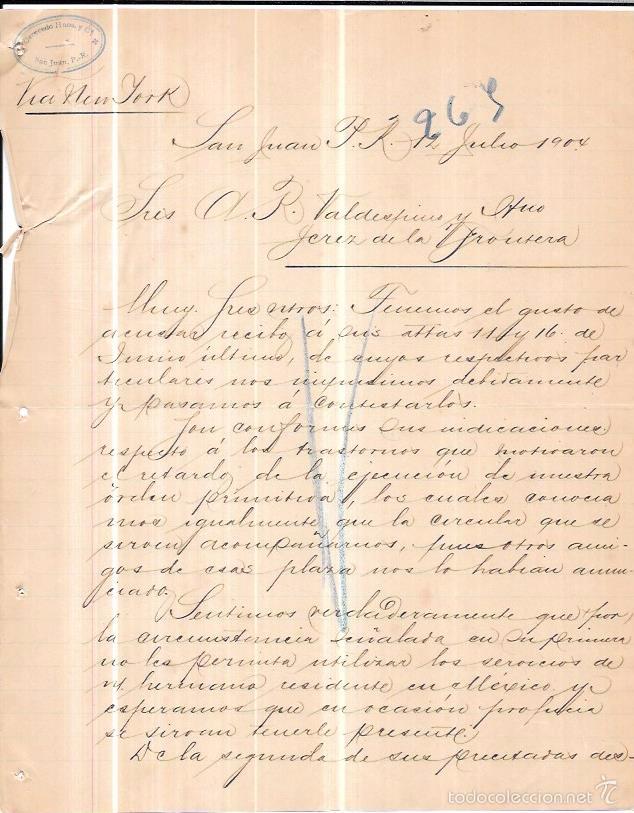 Hnos. y Cª
San Juan, P. R.
Via New York
267
San Juan P. R. 12 Julio 1904
Sres A. R. Valdespino y Hno
Jerez de la Frontera
Muy Sres ntros: Tenemos el gusto de
acusar recibo á sus attas 11 y 16 de
Junio último, de cuyos respectivos par
ticulares nos impusimos debidamente
y pasamos á contestarlos.
Son conformes sus indicaciones
respecto á los trastornos que motivaron
el retardo de la ejecución de nuestra
órden primitiva, los cuales conocia
mos igualmente que la circular que se
sirven acompañarnos, pues otros ami-
gos de esa plaza nos lo habian anun-
ciado.
Sentimos verdaderamente que por
la circunstancia señalada en su primera
no les permita utilizar los servicios de
n/ hermano residente en México y
esperamos que en ocasión propicia
se sirvan tenerle presente.
De la segunda de sus precitadas des-
todocoleccion.net